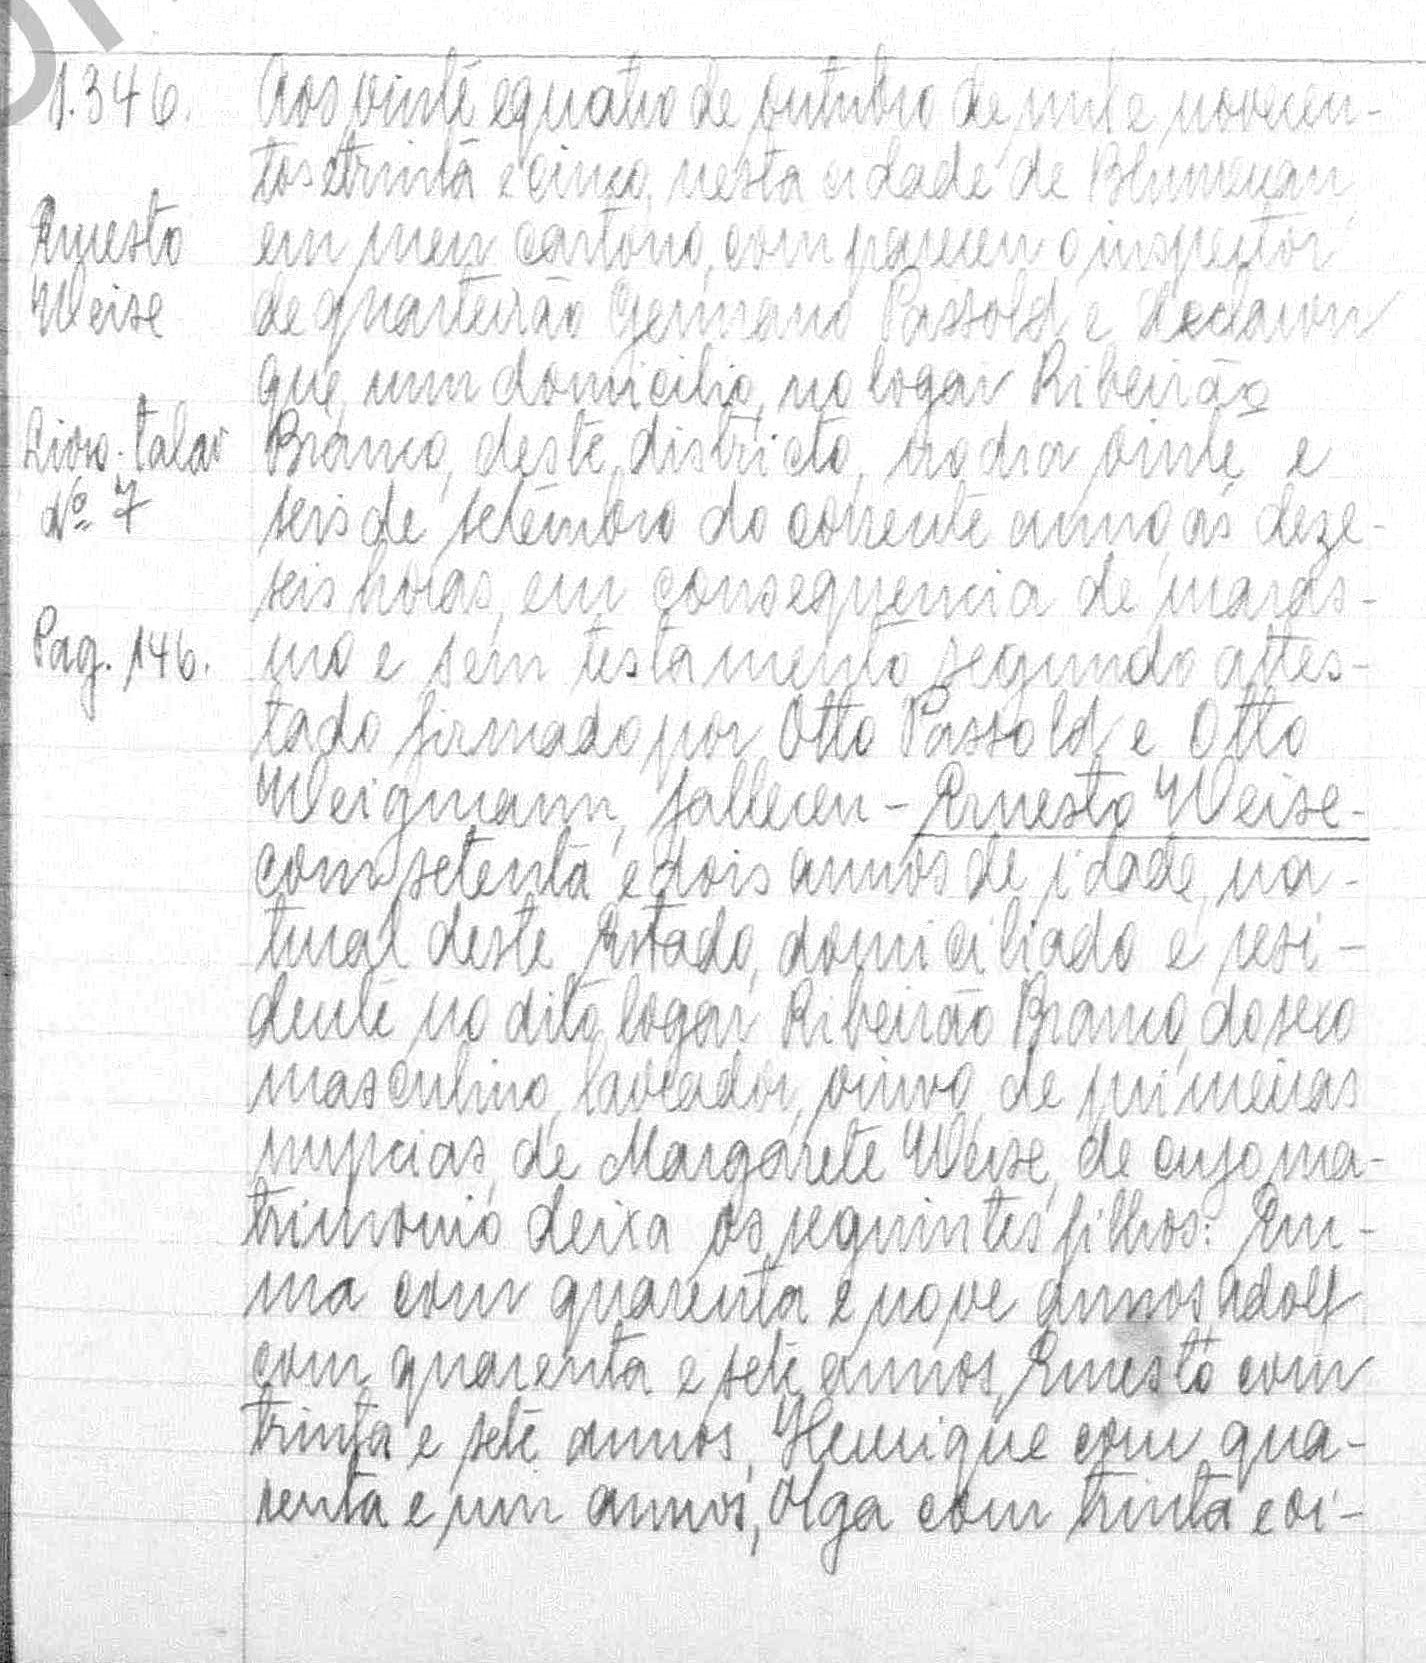 1.346.
Ernesto
Weise
Livro-talão
Nº 7
Pag. 146.
Aos vinte e quatro de outubro de mil e novecen-
tos e trinta e cinco, nesta cidade de Blumenau,
em meu cartorio, compareceu o inspector
de quarteirão Germano Passold e declarou
que, num domicilio, no logar Ribeirão
Branco, deste districto, no dia vinte e
seis de setembro do corrente anno, ás deze-
seis horas, em consequencia de maras-
mo e sem testamento segundo attes-
tado firmado por Otto Passold e Otto
Weigmann, falleceu - Ernesto Weise -
com setenta e dois annos de idade, na-
tural deste Estado, domiciliado e resi-
dente no dito logar Ribeirão Branco, do sexo
masculino, lavrador, viuvo de primeiras
nupcias, de Margarete Weise, de cujo ma-
trimonio deixa os seguintes filhos: Em-
ma com quarenta e nove annos, Adolf
com quarenta e sete annos, Ernesto com
trinta e sete annos, Henrique com qua-
renta e um annos, Olga com trinta e oi-